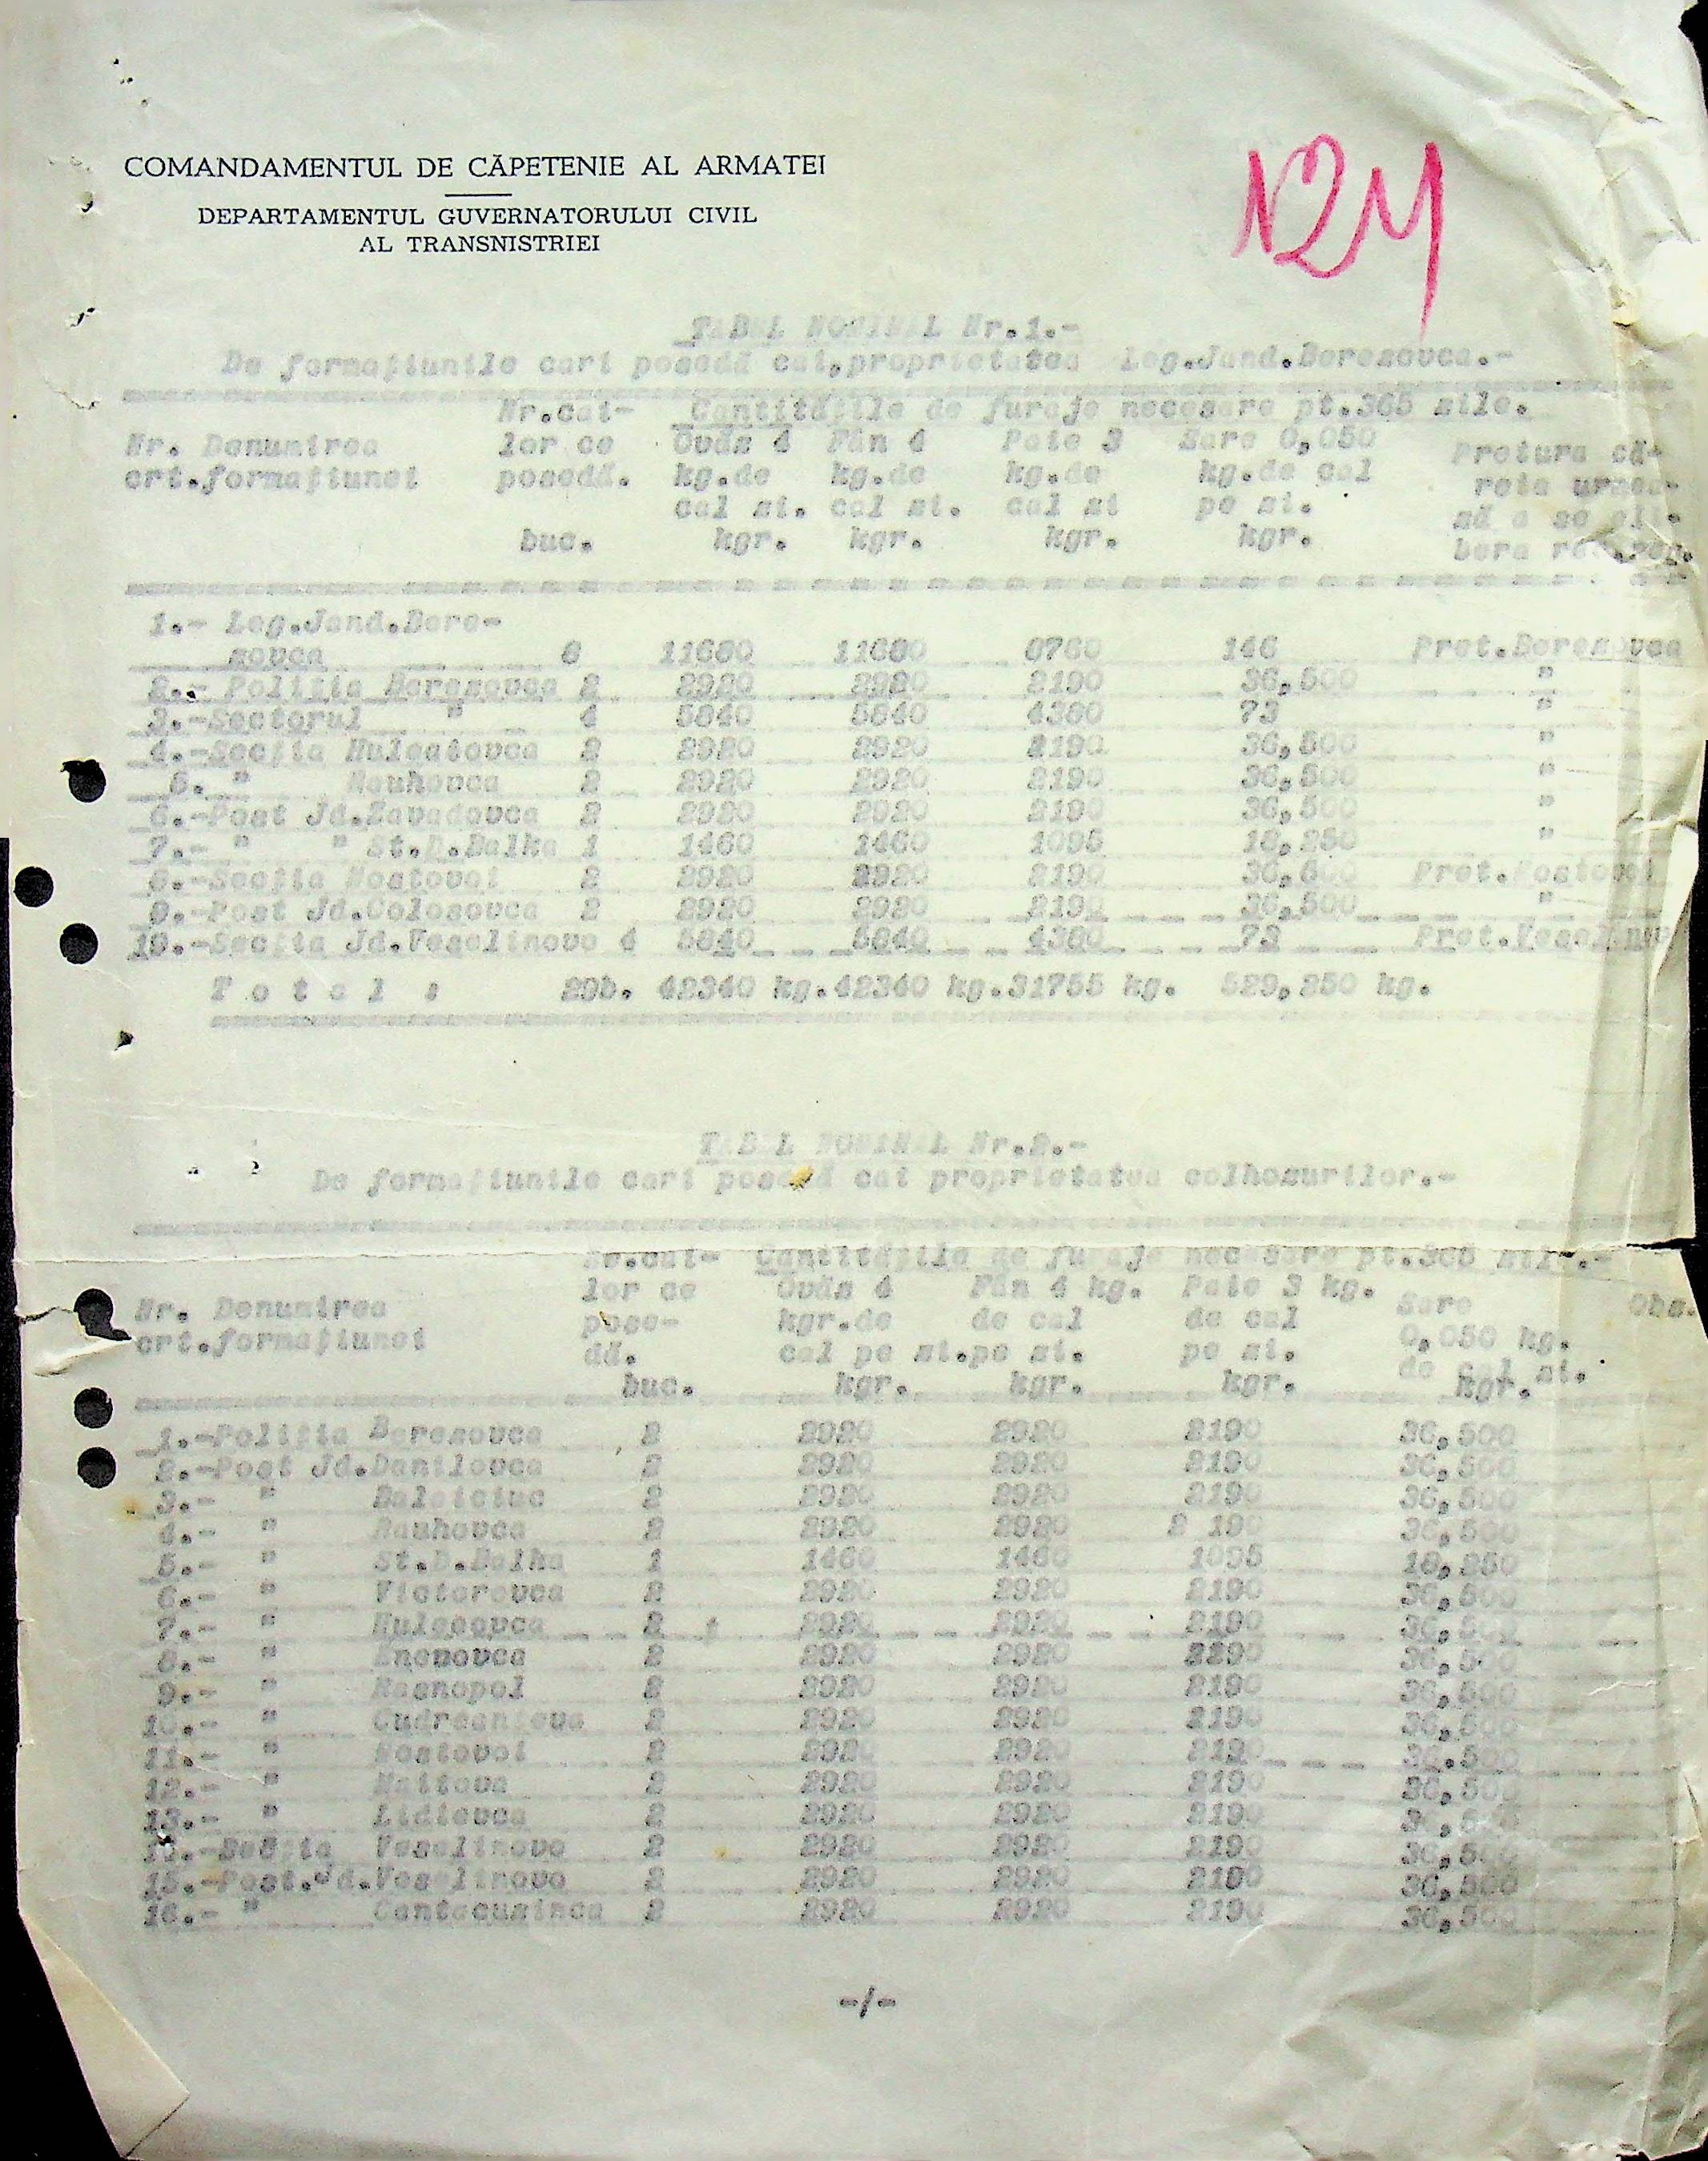 COMANDAMENTUL DE CĂPETENIE AL ARMATEI
DEPARTAMENTUL GUVERNATORULUI CIVIL
AL TRANSNISTRIEI
TABEL NOMINAL Nr.1.-
De formațiunile cari posedă cai,proprietatea Leg.Jand.Beresovca.-
Nr.cai- Cantitățile de furaje necesare pt.365 zile.
Nr. Denumirea lor ce Ovăs 4 Fân 4 Paie 3 Sare 0,050 Pretura că-
crt.formațiunei posedă. kg.de kg.de kg.de kg.de cal reia urmea-
cal zi. cal zi. cal zi pe zi. ză a se eli-
buc. kgr. kgr. kgr. kgr. bera
1.- Leg.Jand.Bere-
zovca 8 11680 11680 8760 146 Pret.Beresovca
2.- Poliția Beresovca 2 2920 2920 2190 36,500 "
3.-Sectorul " 4 5840 5840 4380 73 "
4.-Secția 2 2920 2920 2190 36,500 "
5. " 2 2920 2920 2190 36,500 "
6.-Post Jd.Zavadovca 2 2920 2920 2190 36,500 "
7.- " " St.D.Balka 1 1460 1460 1095 18,250 "
8.-Secția Mostovoi 2 2920 2920 2190 36,500 Pret.Mostovoi
9.-Post Jd.Colosovca 2 2920 2920 2190 36,500 "
10.-Secția Jd.Veselinovo 4 5840 5840 4380 73 Pret.
T o t a l : 29b. 42340 kg.42340 kg.31755 kg. 529,250 kg.
TABEL NOMINAL Nr.2.-
De formațiunile cari posedă cai proprietatea colhozurilor.-
Nr.cai- Cantitățile de furaje necesare pt.365 zile.-
lor ce Ovăs 4 Fân 4 kg. Paie 3 kg. Sare Obs.
Nr. Denumirea pose- kgr.de de cal de cal 0,050 kg.
crt.formațiunei dă. cal pe zi.pe zi. pe zi. de cal zi.
buc. kgr. kgr. kgr. kgr.
1.-Poliția Beresovca 2 2920 2920 2190 36,500
2.-Post Jd.Danilovca 2 2920 2920 2190 36,500
3.- " Balaiciuc 2 2920 2920 2190 36,500
4.- " 2 2920 2920 2 190 36,500
5.- " St.D.Balka 1 1460 1460 1095 18,250
6.- " Victorovca 2 2920 2920 2190 36,500
7.- " 2 2920 2920 2190 36,500
8.- " 2 2920 2920 36,500
9.- " Rasnopol 2 2920 2920 2190 36,500
10.- " 2 2920 2920 2190 36,500
11.- " Mostovoi 2 2920 2920 2190 36.500
12.- " 2 2920 2920 2190 36,500
13.- " Lidievca 2 2920 2920 2190
Secția Veselinovo 2 2920 2920 2190 36,500
15.-Post.Jd.Veselinovo 2 2920 2920 2190 36,500
16.- " Cantacuzinca 2 2920 2920 2190 36,500
-/-